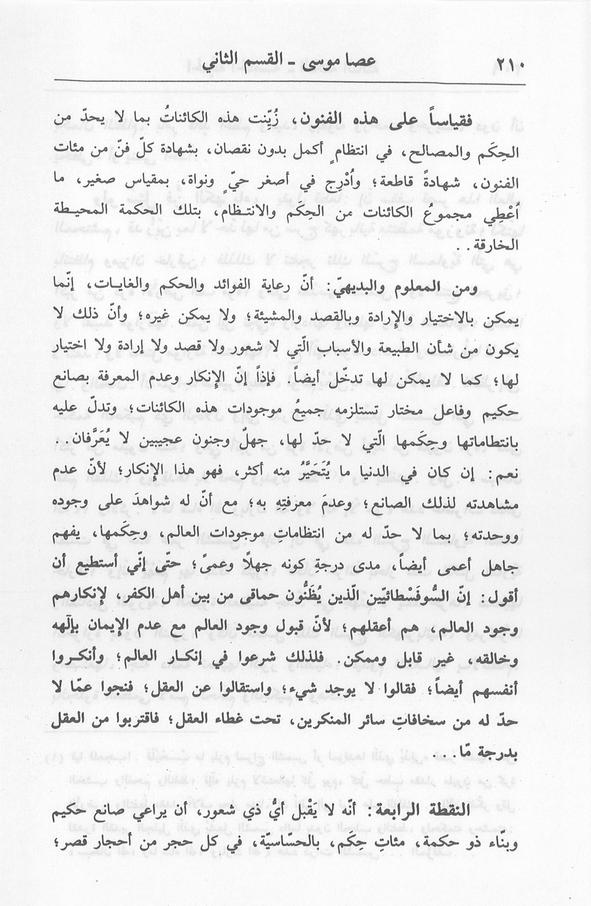 ٢١٠
عصا موسى - القسم الثاني
فقياساً على هذه الفنون، زُيّنت هذه الكائناتُ بما لا يحدّ من
الحِكَم والمصالح، في انتظامٍ أكمل بدون نقصان، بشهادة كلّ فنّ من مئات
الفنون، شهادةً قاطعة؛ وأُدْرِج في أصغر حيّ ونواة، بمقياس صغير، ما
أُعْطِي مجموعُ الكائنات من الحِكَم والانتظام، بتلك الحكمة المحيطة
الخارقة..
ومن المعلوم والبديهيّ: أنّ رعاية الفوائد والحكم والغايات، إنّما
يمكن بالاختيار والإرادة وبالقصد والمشيئة؛ ولا يمكن غيره؛ وأنّ ذلك لا
يكون من شأن الطبيعة والأسباب الّتي لا شعور ولا قصد ولا إرادة ولا اختيار
لها؛ كما لا يمكن لها تدخّل أيضاً. فإذاً إنّ الإنكار وعدم المعرفة بصانع
حكيم وفاعل مختار تستلزمه جميعُ موجودات هذه الكائنات؛ وتدلّ عليه
بانتظاماتها وحِكَمها الّتي لا حدّ لها، جهلٌ وجنون عجيبين لا يُعَرَّفان..
نعم: إن كان في الدنيا ما يُتَحَيَّرُ منه أكثر، فهو هذا الإنكار؛ لأنّ عدم
مشاهدته لذلك الصانع؛ وعدمَ معرفتِهِ به؛ مع أنّ له شواهدَ على وجوده
ووحدته؛ بما لا حدّ له من انتظاماتِ موجودات العالم، وحِكَمها، يفهم
جاهل أعمى أيضاً، مدى درجةِ كونه جهلاً وعمىً؛ حتّى إنّي أستطيع أن
أقول: إنّ السُّوفَسْطائيّين الّذين يُظَنُّون حماقى من بين أهل الكفر، لإنكارهم
وجود العالم، هم أعقلهم؛ لأنّ قبول وجود العالم مع عدم الإيمان بإلٰهه
وخالقه، غير قابل وممكن. فلذلك شرعوا في إنكار العالم؛ وأنكروا
أنفسهم أيضاً؛ فقالوا لا يوجد شيء؛ واستقالوا عن العقل؛ فنجوا عمّا لا
حدّ له من سخافاتِ سائر المنكرين، تحت غطاء العقل؛ فاقتربوا من العقل
بدرجة مّا...
النقطة الرابعة: أنّه لا يَقْبل أيُّ ذي شعور، أن يراعي صانع حكيم
وبنّاء ذو حكمة، مئاتِ حِكَم، بالحسّاسيّة، في كل حجر من أحجار قصر؛